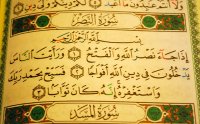 وَلَا أَنتُمْ عَابِدُونَ مَا أَعْبُدُ لَكُمْ دِينُكُمْ وَلِيَ دِينِ
سُورَةُ النَّصْرِ
بِسْمِ اللَّهِ الرَّحْمَٰنِ الرَّحِيمِ
إِذَا جَاءَ نَصْرُ اللَّهِ وَالْفَتْحُ وَرَأَيْتَ النَّاسَ
يَدْخُلُونَ فِي دِينِ اللَّهِ أَفْوَاجًا فَسَبِّحْ بِحَمْدِ رَبِّكَ
وَاسْتَغْفِرْهُ إِنَّهُ كَانَ تَوَّابًا
سُورَةُ الْمَسَدِ